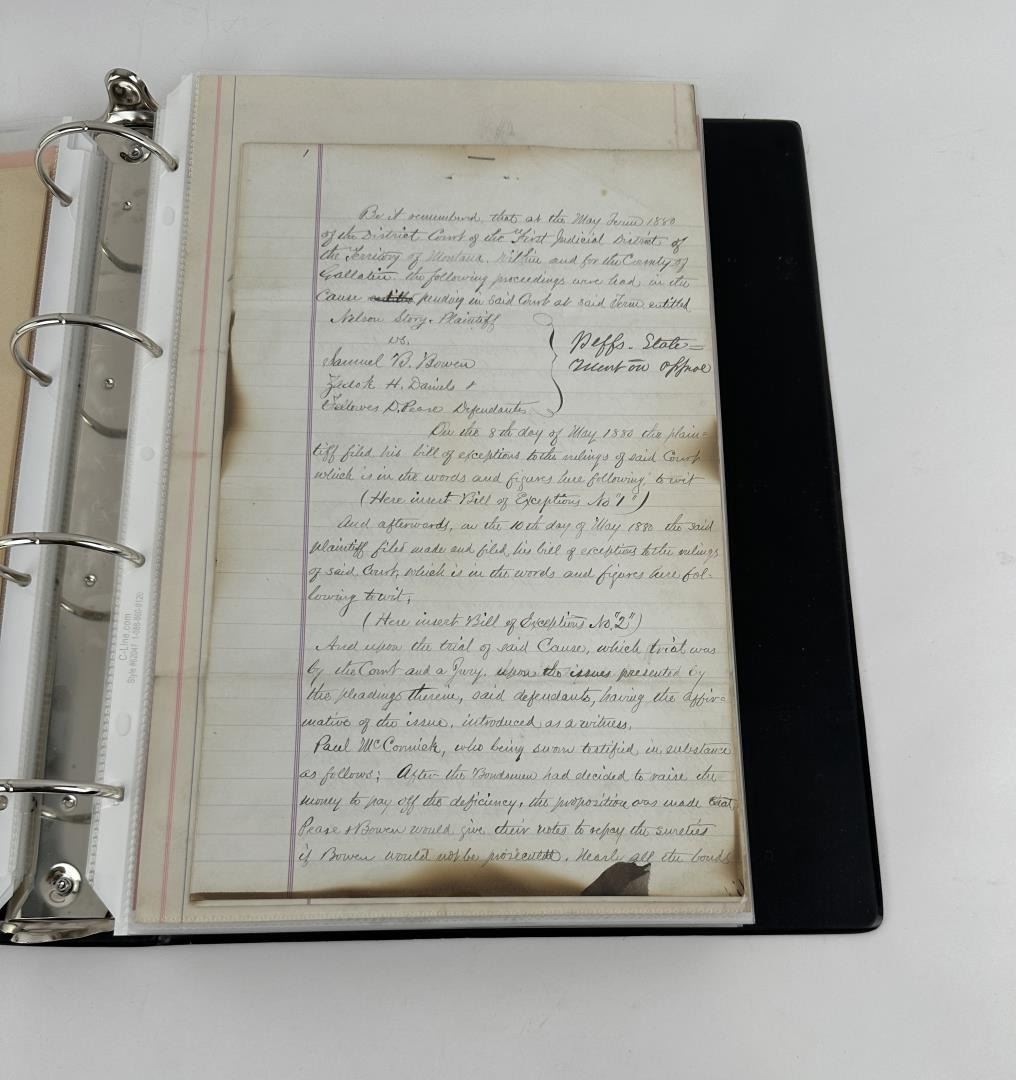 1
Be it remembered, that at the May Term 1880
of the District Court of the First Judicial District of
the Territory of Montana, Within and for the County of
Gallatin. the following proceedings were had in the
Cause pending in said Court at said Term entitled
Nelson Story. Plaintiff
vs.
Samuel B. Bowen
H. Daniels &
D. Pease Defendants
Deffs. State=
ment on
On the 8th day of May 1880 the plain=
tiff filed his bill of exceptions to the rulings of said Court
which is in the words and figures here following, to wit
(Here insert Bill of Exceptions No "1")
And afterwards, on the 10th day of May 1880 the said
plaintiff filed made and filed his bill of exceptions to the rulings
of said Court, which is in the words and figures here fol-
lowing to wit,
(Here insert Bill of Exceptions No. "2")
And upon the trial of said Cause, which trial was
by the Court and a Jury, upon the issues presented by
the pleadings therein, said defendants, having the affir=
mative of the issue, introduced as a witness,
Paul McCormick, who being sworn testified in substance
as follows; After the Bondsmen had decided to raise the
money to pay off the deficiency, the proposition was made that
Pease & Bowen would give their notes to repay the sureties
if Bowen would not be prosecuted. Nearly all the bonds
C-Line.com
Style #62047 1-888-860-9120